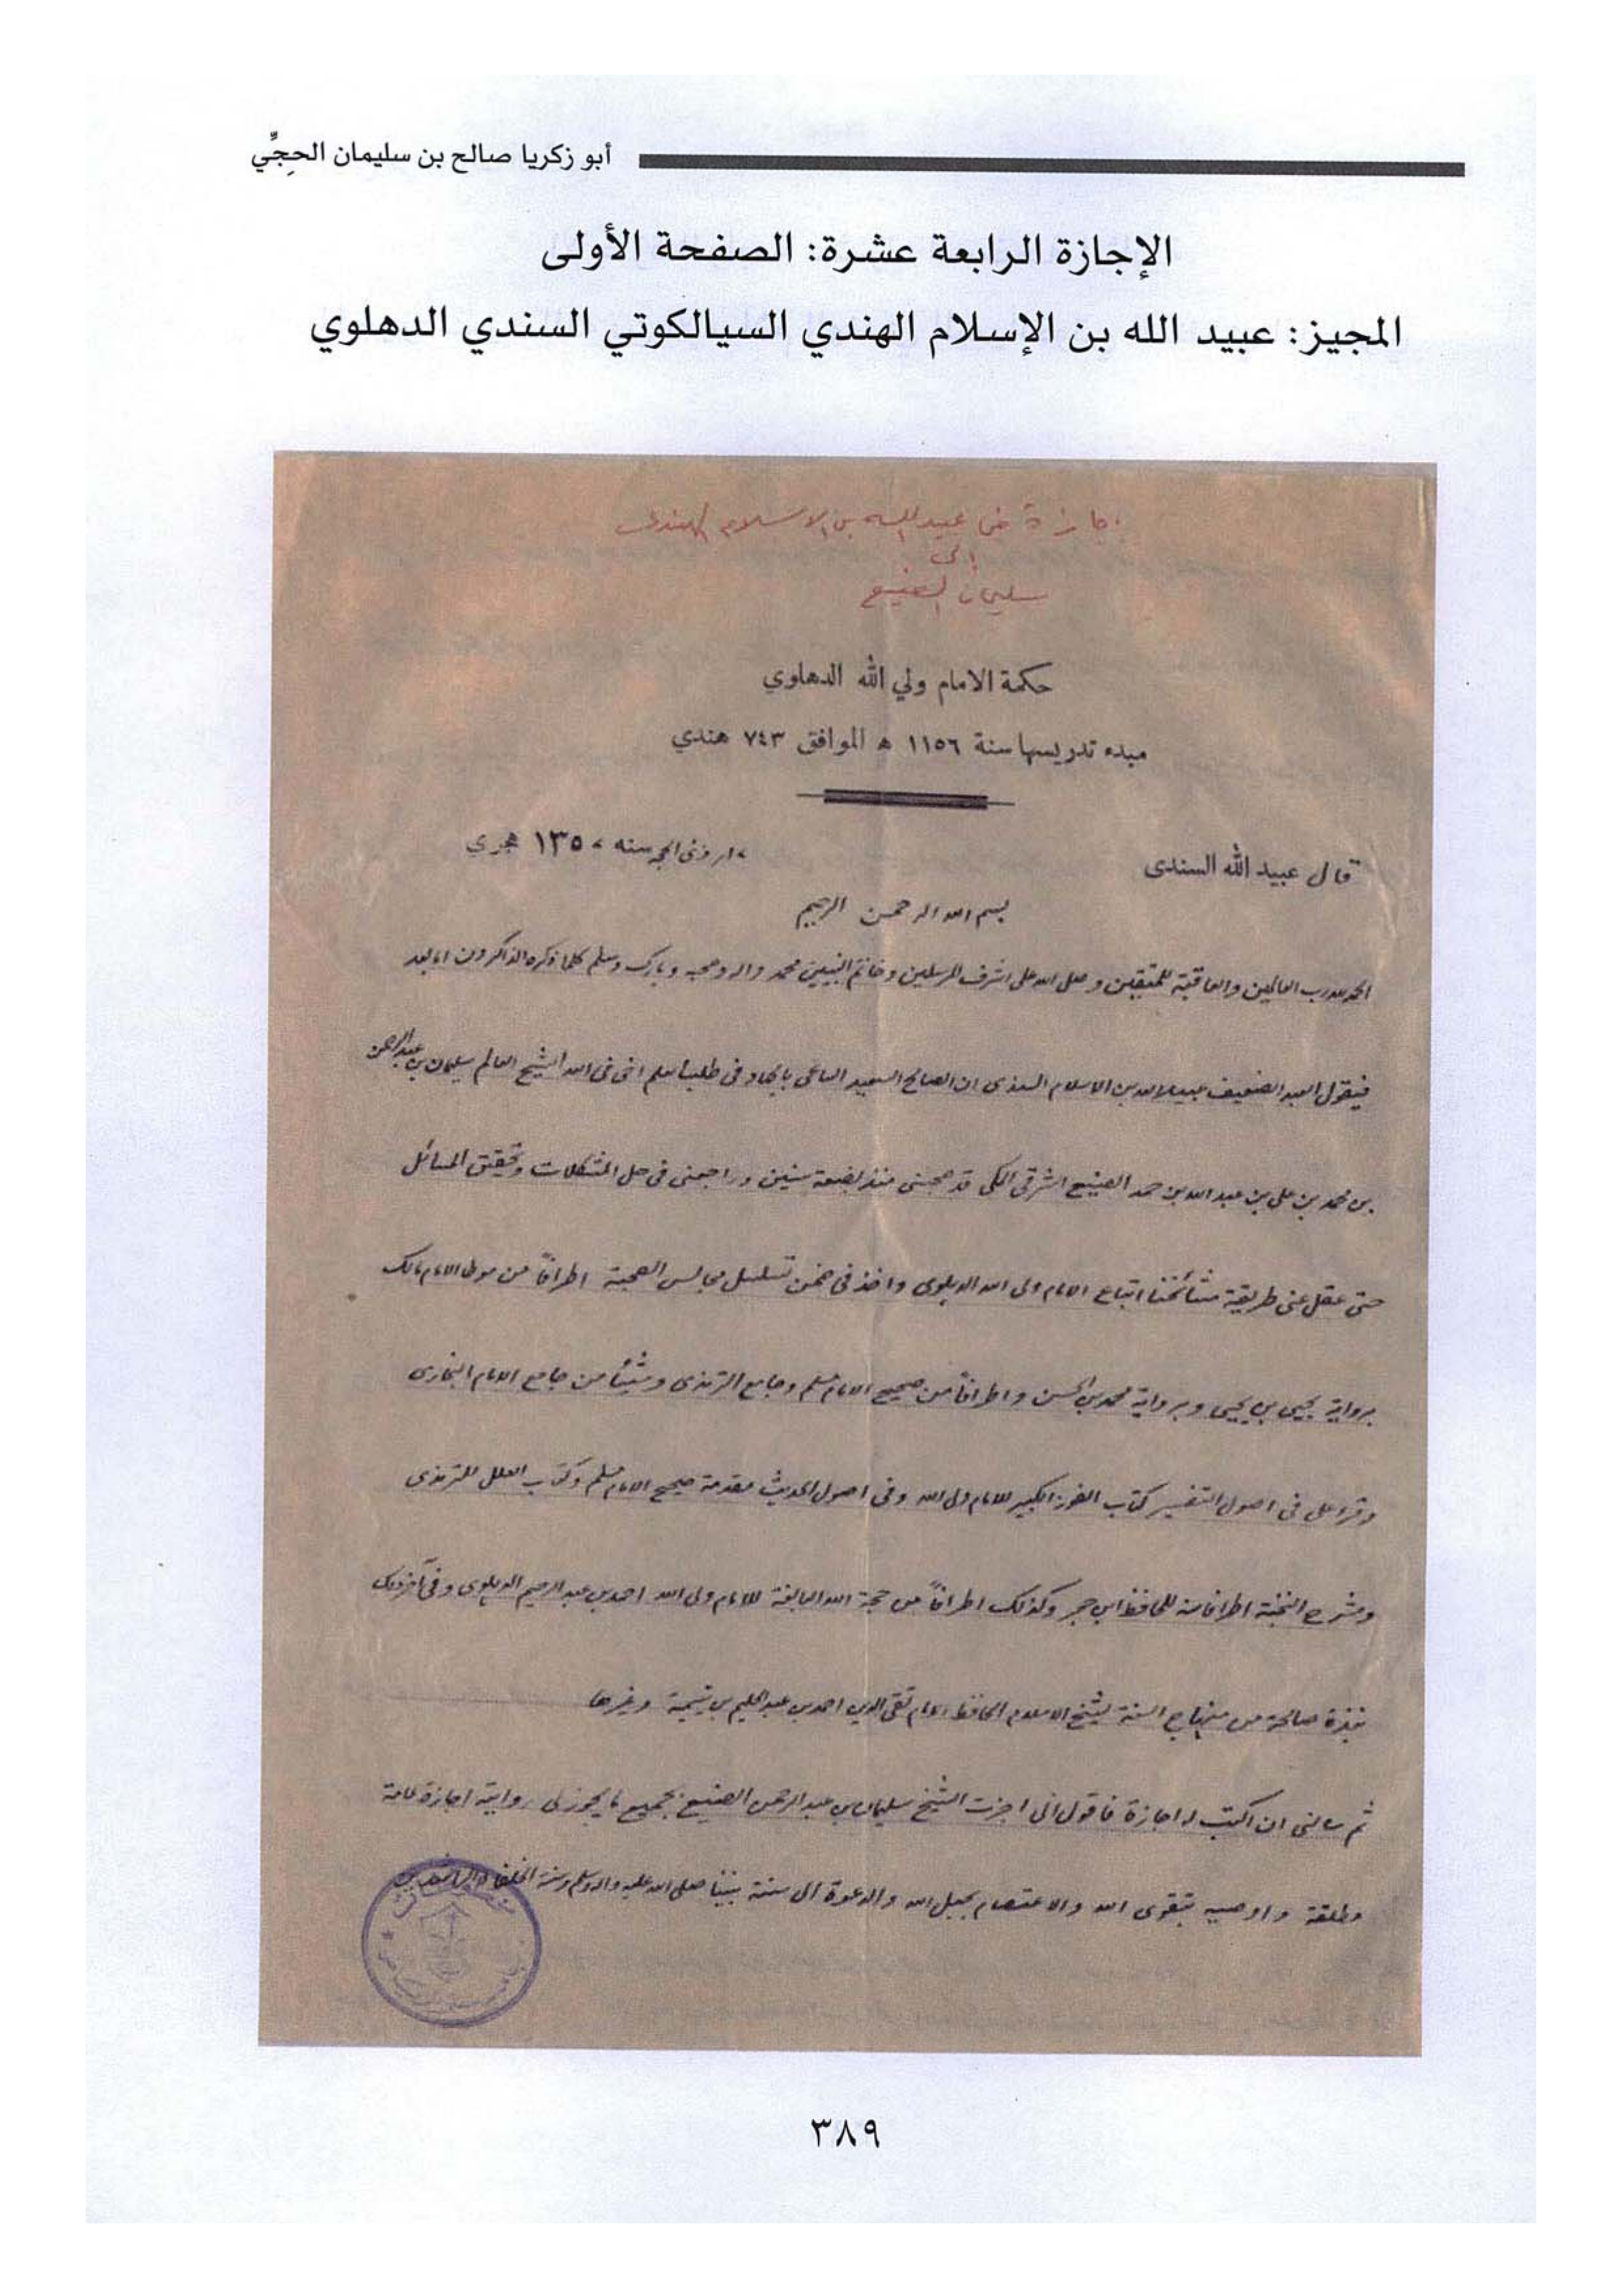 أبو زكريا صالح بن سليمان الحجِّي
الإجازة الرابعة عشرة: الصفحة الأولى
المجيز: عبيد الله بن الإسلام الهندي السيالكوتي السندي الدهلوي
اجازة من عبيد الله بن الاسلام الهندي
الى
سليمان الصنيع
حكمة الامام ولي الله الدهلوي
مبدء تدريسها سنة ١١٥٦ ه الموافق ٧٤٣ هندي
ذى الحجه سنه ١٣٥٠ هجري
قال عبيد الله السندى
بسم الله الرحمن الرحيم
الحمد لله رب العالمين والعاقبة للمتقين وصلى الله على اشرف المرسلين وخاتم النبيين محمد واله وصحبه وبارك وسلم كلما ذكره الذاكرون اما بعد
فيقول العبد الضعيف عبيد الله بن الاسلام السندى ان الصالح السعيد الساعى فى طلب العلم اخى فى الله الشيخ العالم سليمان بن عبد الرحمن
بن محمد بن على بن عبد الله بن حمد الصنيع الشرقى المكى قد صحبنى منذ بضعة سنين وراجعنى فى حل المشكلات وتحقيق المسائل
حتى عقل عنى طريقة مشائخنا اتباع الامام ولى الله الدهلوى واخذ فى ضمن تسلسل مجالس الصحبة اطرافاً من موطا الامام مالك
برواية يحيى بن يحيى وبرواية محمد بن الحسن واطرافاً من صحيح الامام مسلم وجامع الترمذى وشيئاً من جامع الامام البخارى
وقرء على فى اصول التفسير كتاب الفوز الكبير للامام ولى الله وفى اصول الحديث مقدمة صحيح الامام مسلم وكتاب العلل للترمذى
وشرح النخبة اطرافا منه للحافظ ابن حجر وكذلك اطرافاً من حجة الله البالغة للامام ولى الله احمد بن عبد الرحيم الدهلوى وفى آخر ذلك
نبذة صالحة من منهاج السنة لشيخ الاسلام الحافظ الامام تقى الدين احمد بن عبد الحليم بن تيمية وغيرها
ثم سالنى ان اكتب له اجازة فاقول انى اجزت الشيخ سليمان بن عبد الرحمن الصنيع بجميع ما يجوز لى روايته اجازة عامة
مطلقة واوصيه بتقوى الله والاعتصام بحبل الله والدعوة الى سنة نبينا صلى الله عليه واله وسلم وسنة الخلفاء الراشدين
٣٨٩